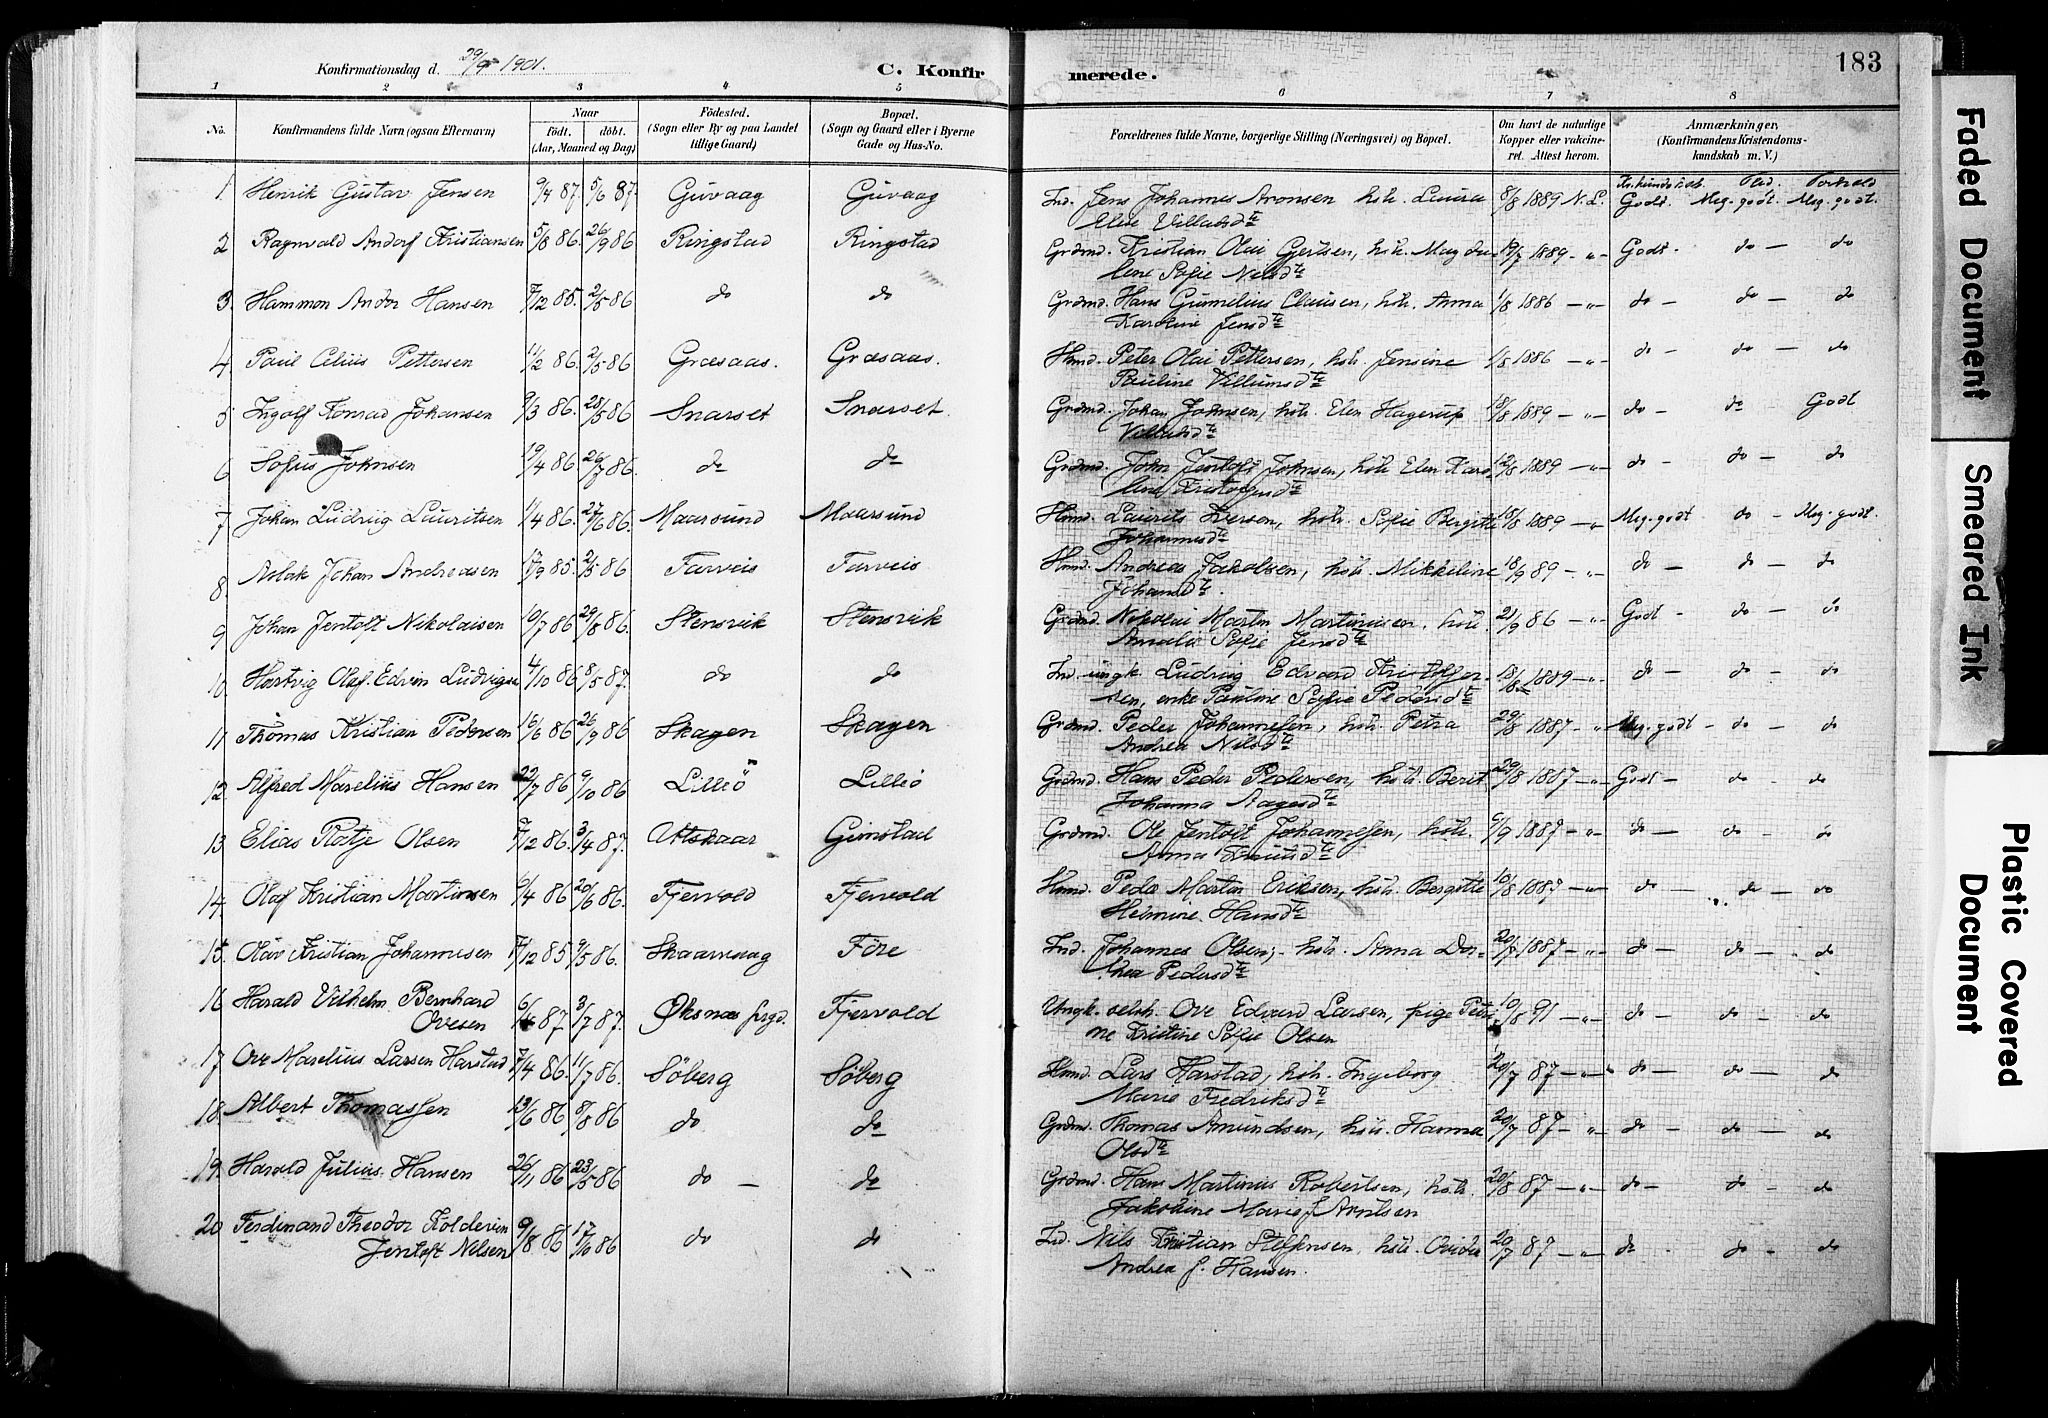 183
Konfirmationsdag d. 29/9 1901.
C. Konfirmerede.
1 2 3 4 5 6 7 8
No.
Konfirmandens fulde Navn (ogsaa Efternavn)
Naar
födt. döbt.
(Aar, Maaned og Dag)
Födested.
(Sogn eller By og paa Landet
tillige Gaard)
Bopæl.
(Sogn og Gaard eller i Byerne
Gade og Hus-No.
Forældrenes fulde Navne, borgerlige Stilling (Næringsvei) og Bopæl.
Om havt de naturlige
Kopper eller vakcine-
ret. Attest herom.
Anmærkninger,
(Konfirmandens Kristendoms-
kundskab m. V.)
Kr.kundskab. Flid. Forhold
1 Henrik Gustav Jensen 9/4 87. 5/6 87. Guvaag Guvaag Ind. Jens Johannes Aronsen hstr. Laura 8/8 1889 N.L. Godt. Meg. godt. Meg. godt.
Elise Villatsd
2 Ragnvald Andorf Kristiansen 5/8 86. 26/9 86 Ringstad Ringstad Grdmd. Kristian Olai Gertsen, hstr. Magda- 19/7 1889 - " - Godt - do - do
lene Sofie Nilsd
3. Hammon Andor Hansen 7/12 85. 2/5 86 do do Grdmd. Hans Gumelius Clausen, hstr. Anna 1/8 1886 - " - do - do - do
Karoline Jensd
4 Paul Celius Pettersen 11/2 86. 2/5 86 Græsaas. Græsaas. Hmd. Peter Olai Pettersen, hstr. Jensine 1/8 1886 - " - do - do - do
Pauline Villumsd
5 Ingolf Konrad Johansen 9/3 86. 28/5 86 Snarset Snarset. Grdmd. Johan Johnsen, hstr. Elen Hagerup 18/8 1889 - " - do - do Godt
Villatsd
6 Sofus Johnsen 19/4 86. 26/7 86. do do Grdmd. John Jentoft Johnsen, hstr. Elen Karo- 12/8 1889 - " - do - do - do
line Kristofersd
7 Johan Ludvig Lauritsen 1/4 86. 27/6 86. Maarsund Maarsund Hmd. Laurits Iversen, hstr. Sofie Bergitte 18/8 1889 - " Meg. godt do - Meg. godt.
Johannesd
8. Aslak Johan Andreasen 17/9 85. 2/5 86 Farveis Farveis Hmd. Andreas Jakobsen, hstr. Mikkeline 18/9 89 - " - do - do - do
Johansd
9 Johan Jentoft Nikolaisen 10/7 86 29/8 86. Stensvik Stensvik Grdmd. Nikolai Martin Martinusen, hstr. 21/9 86 - " - Godt - do - do
Amalie Sofie Jensd
10 Hartvig Olaf Edvin Ludvigsen 4/10 86 8/5 87. do do Ind. ungk. Ludvig Edvard Kristoffer- 18/8 1889 - " - do - do - do
sen, enke Pauline Sofie Pedersd
11 Thomas Kristian Pedersen 16/6 86 26/9 86 Skagen Skagen Grdmd. Peder Johannessen, hstr. Petra 29/8 1887 - " Meg. godt - do - do
Andrea Nilsd
12. Alfred Marelius Hansen 22/7 86 9/10 86 Lilleö Lilleö Grdmd. Hans Peder Pedersen, hstr. Berit 29/8 1887 - " - Godt - do - do
Johanna Aagesd
13. Elias Rotje Olsen 7/12 86. 3/4 87. Utskaar Gimstad Grdmd. Ole Jentoft Johannessen, hstr. 6/9 1887 - " - do - do - do
Anna
14. Olaf Kristian Martinsen 9/4 86 20/6 86. Fjervold Fjervold Hmd. Peder Martin Eriksen, hstr. Bergitte 10/8 1887 - " - do - do - do
Helmine Hansd
15. Olav Kristian Johannesen 7/12 85 9/5 86. Skaarvaag Före Ind. Johannes Olsen, hstr. Anna Dor- 20/7 1887 - " - do - do - do
thea Pedersd
16 Harald Vilhelm Bernhard 6/4 87 3/7 87. Öksnæs prgd. Fjervold Ungk. Ove Edvard Larsen, pige Petri- 10/8 91 - " - do - do - do
Ovesen ne Kristine Sofie Olsen
17. Ove Marelius Larsen Harstad 7/4 86. 11/7 86. Söberg Söberg Hmd. Lars Harstad, hstr. Ingeborg 20/7 87 - " - do - do - do
Marie Fredriksd
18. Albert Thomassen 12/6 86 8/8 86 do do Grdmd. Thomas Amundsen, hstr. Hanna 20/7 87 - " - do - do - do
Olsd
19. Harald Julius Hansen 26/11 86 23/5 86 do - do Grdmd. Hans Martinus Robertsen, hstr. 20/8 87 - " - do - do - do
Jakobine Marie J. Arntsen
20 Ferdinand Theodor Kolderin 9/8 86 17/10 86 do do Ind. Nils Kristian Steffensen, hstr. Ovidia 20/7 87 - " - do - do - do
Jentoft Nilsen Andrea J. Hansen.
Faded Document
Smeared Ink
Plastic Covered
Document